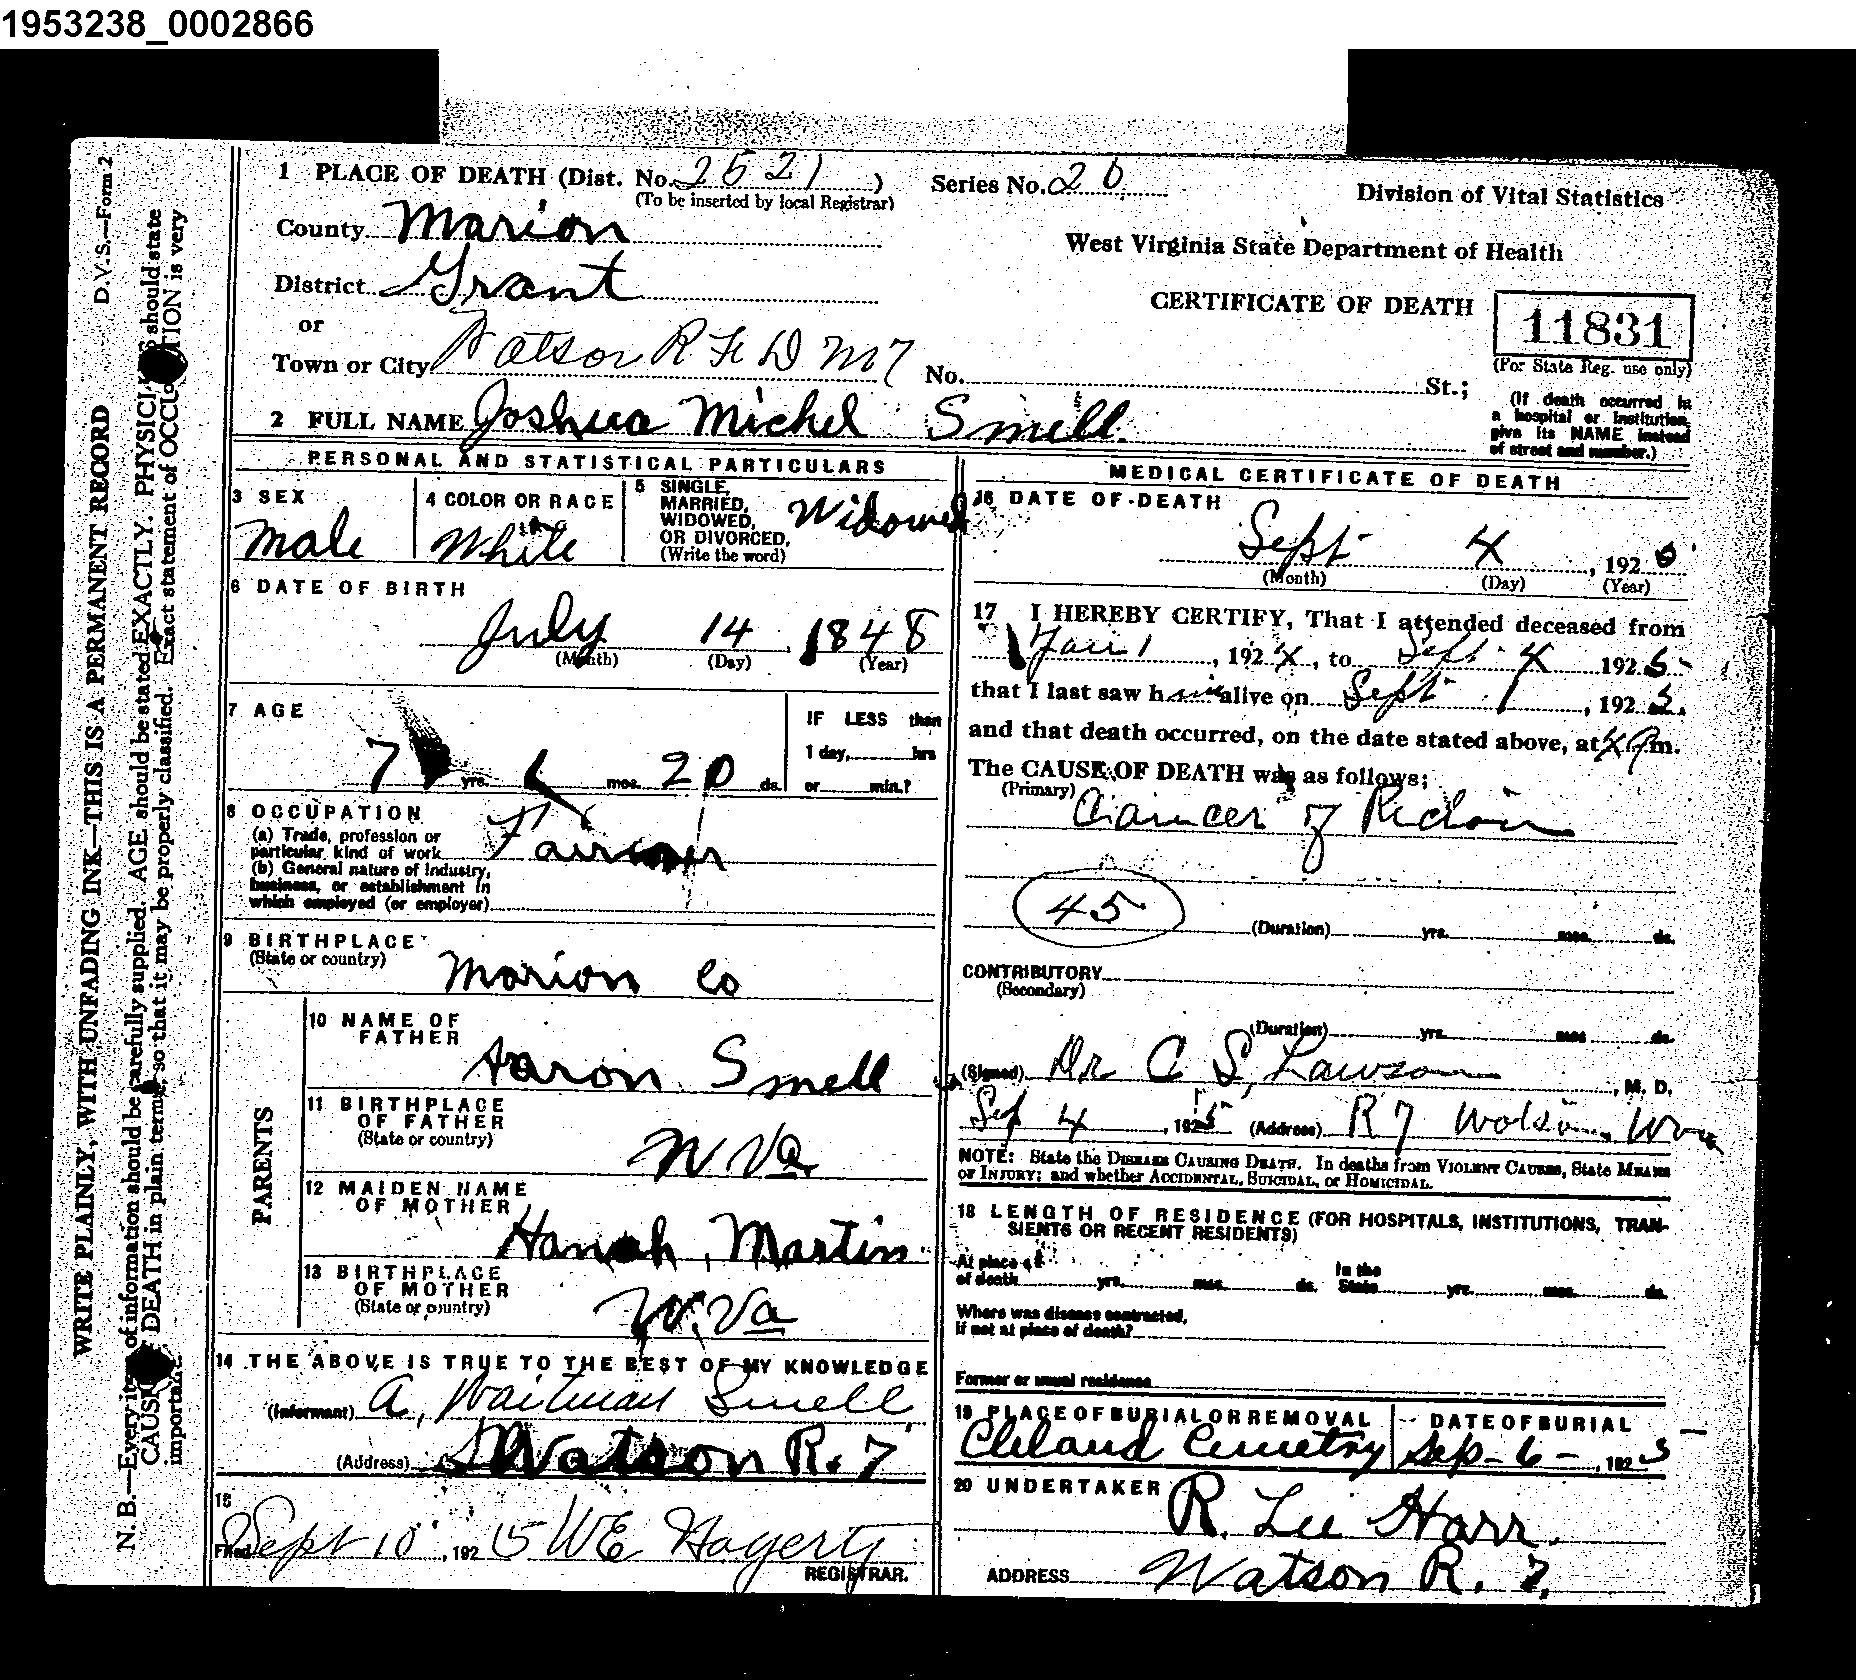 1953238_0002866
1 PLACE OF DEATH (Dist. No. 2521 )
(To be inserted by local Registrar)
Series No. 20
Division of Vital Statistics
County Marion
West Virginia State Department of Health
District Grant
or
CERTIFICATE OF DEATH
11831
(For State Reg. use only)
Town or City Watson R F D No 7
No. St.;
(If death occurred in
a hospital or institution,
give its NAME instead
of street and number.)
2 FULL NAME Joshua Michel Smell.
PERSONAL AND STATISTICAL PARTICULARS
3 SEX
Male
4 COLOR OR RACE
White
5 SINGLE,
MARRIED,
WIDOWED,
OR DIVORCED,
(Write the word)
Widowed
6 DATE OF BIRTH
July 14, 1848
(Month) (Day) (Year)
7 AGE
7 yrs. mos. 20 ds.
IF LESS than
1 day, hrs
or min.?
8 OCCUPATION
(a) Trade, profession or
particular, kind of work
(b) General nature of Industry,
business, or establishment in
which employed (or employer)
Farmer
9 BIRTHPLACE
(State or country)
Marion Co
PARENTS
10 NAME OF
FATHER
Aaron Smell
11 BIRTHPLACE
OF FATHER
(State or country)
W Va
12 MAIDEN NAME
OF MOTHER
Hanah, Martin
13 BIRTHPLACE
OF MOTHER
(State or country)
W. Va
14 THE ABOVE IS TRUE TO THE BEST OF MY KNOWLEDGE
(Informant) A, Waitman Smell
(Address) Watson R. 7
15
Filed Sept 10, 192 5 WE Hagerty
REGISTRAR.
MEDICAL CERTIFICATE OF DEATH
16 DATE OF DEATH
Sept 4, 192
(Month) (Day) (Year)
17 I HEREBY CERTIFY, That I attended deceased from
Jan 1, 1924, to Sept 4 1925
that I last saw h im alive on Sept 1, 1925.
and that death occurred, on the date stated above, at 4 m.
The CAUSE OF DEATH was as follows:
(Primary)
Cancer of
45
(Duration) yrs. mos. ds.
CONTRIBUTORY
(Secondary)
(Duration) yrs. mos ds.
(Signed) Dr C S, Lawson, M. D.
Sep 4, 1925 (Address) R 7 Watson, Wva
NOTE: State the DISEASE CAUSING DEATH. In deaths from VIOLENT CAUSES, State MEANS
OF INJURY; and whether ACCIDENTAL, SUICIDAL, or HOMICIDAL.
18 LENGTH OF RESIDENCE (FOR HOSPITALS, INSTITUTIONS, TRAN-
SIENTS OR RECENT RESIDENTS)
At place
of death yrs. mos. ds.
In the
State yrs. mos. ds.
Where was disease contracted,
If not at place of death?
Former or usual residence
19 PLACE OF BURIAL OR REMOVAL
Cleland Cemetry
DATE OF BURIAL
Sep - 6 -, 1925
20 UNDERTAKER
R. Lee Harr.
ADDRESS Watson R. 7.
D.V.S.—Form 2
WRITE PLAINLY, WITH UNFADING INK—THIS IS A PERMANENT RECORD
N. B.—Every item of information should be carefully supplied. AGE should be stated EXACTLY. PHYSICIANS should state
CAUSE OF DEATH in plain terms, so that it may be properly classified. Exact statement of OCCUPATION is very
important.